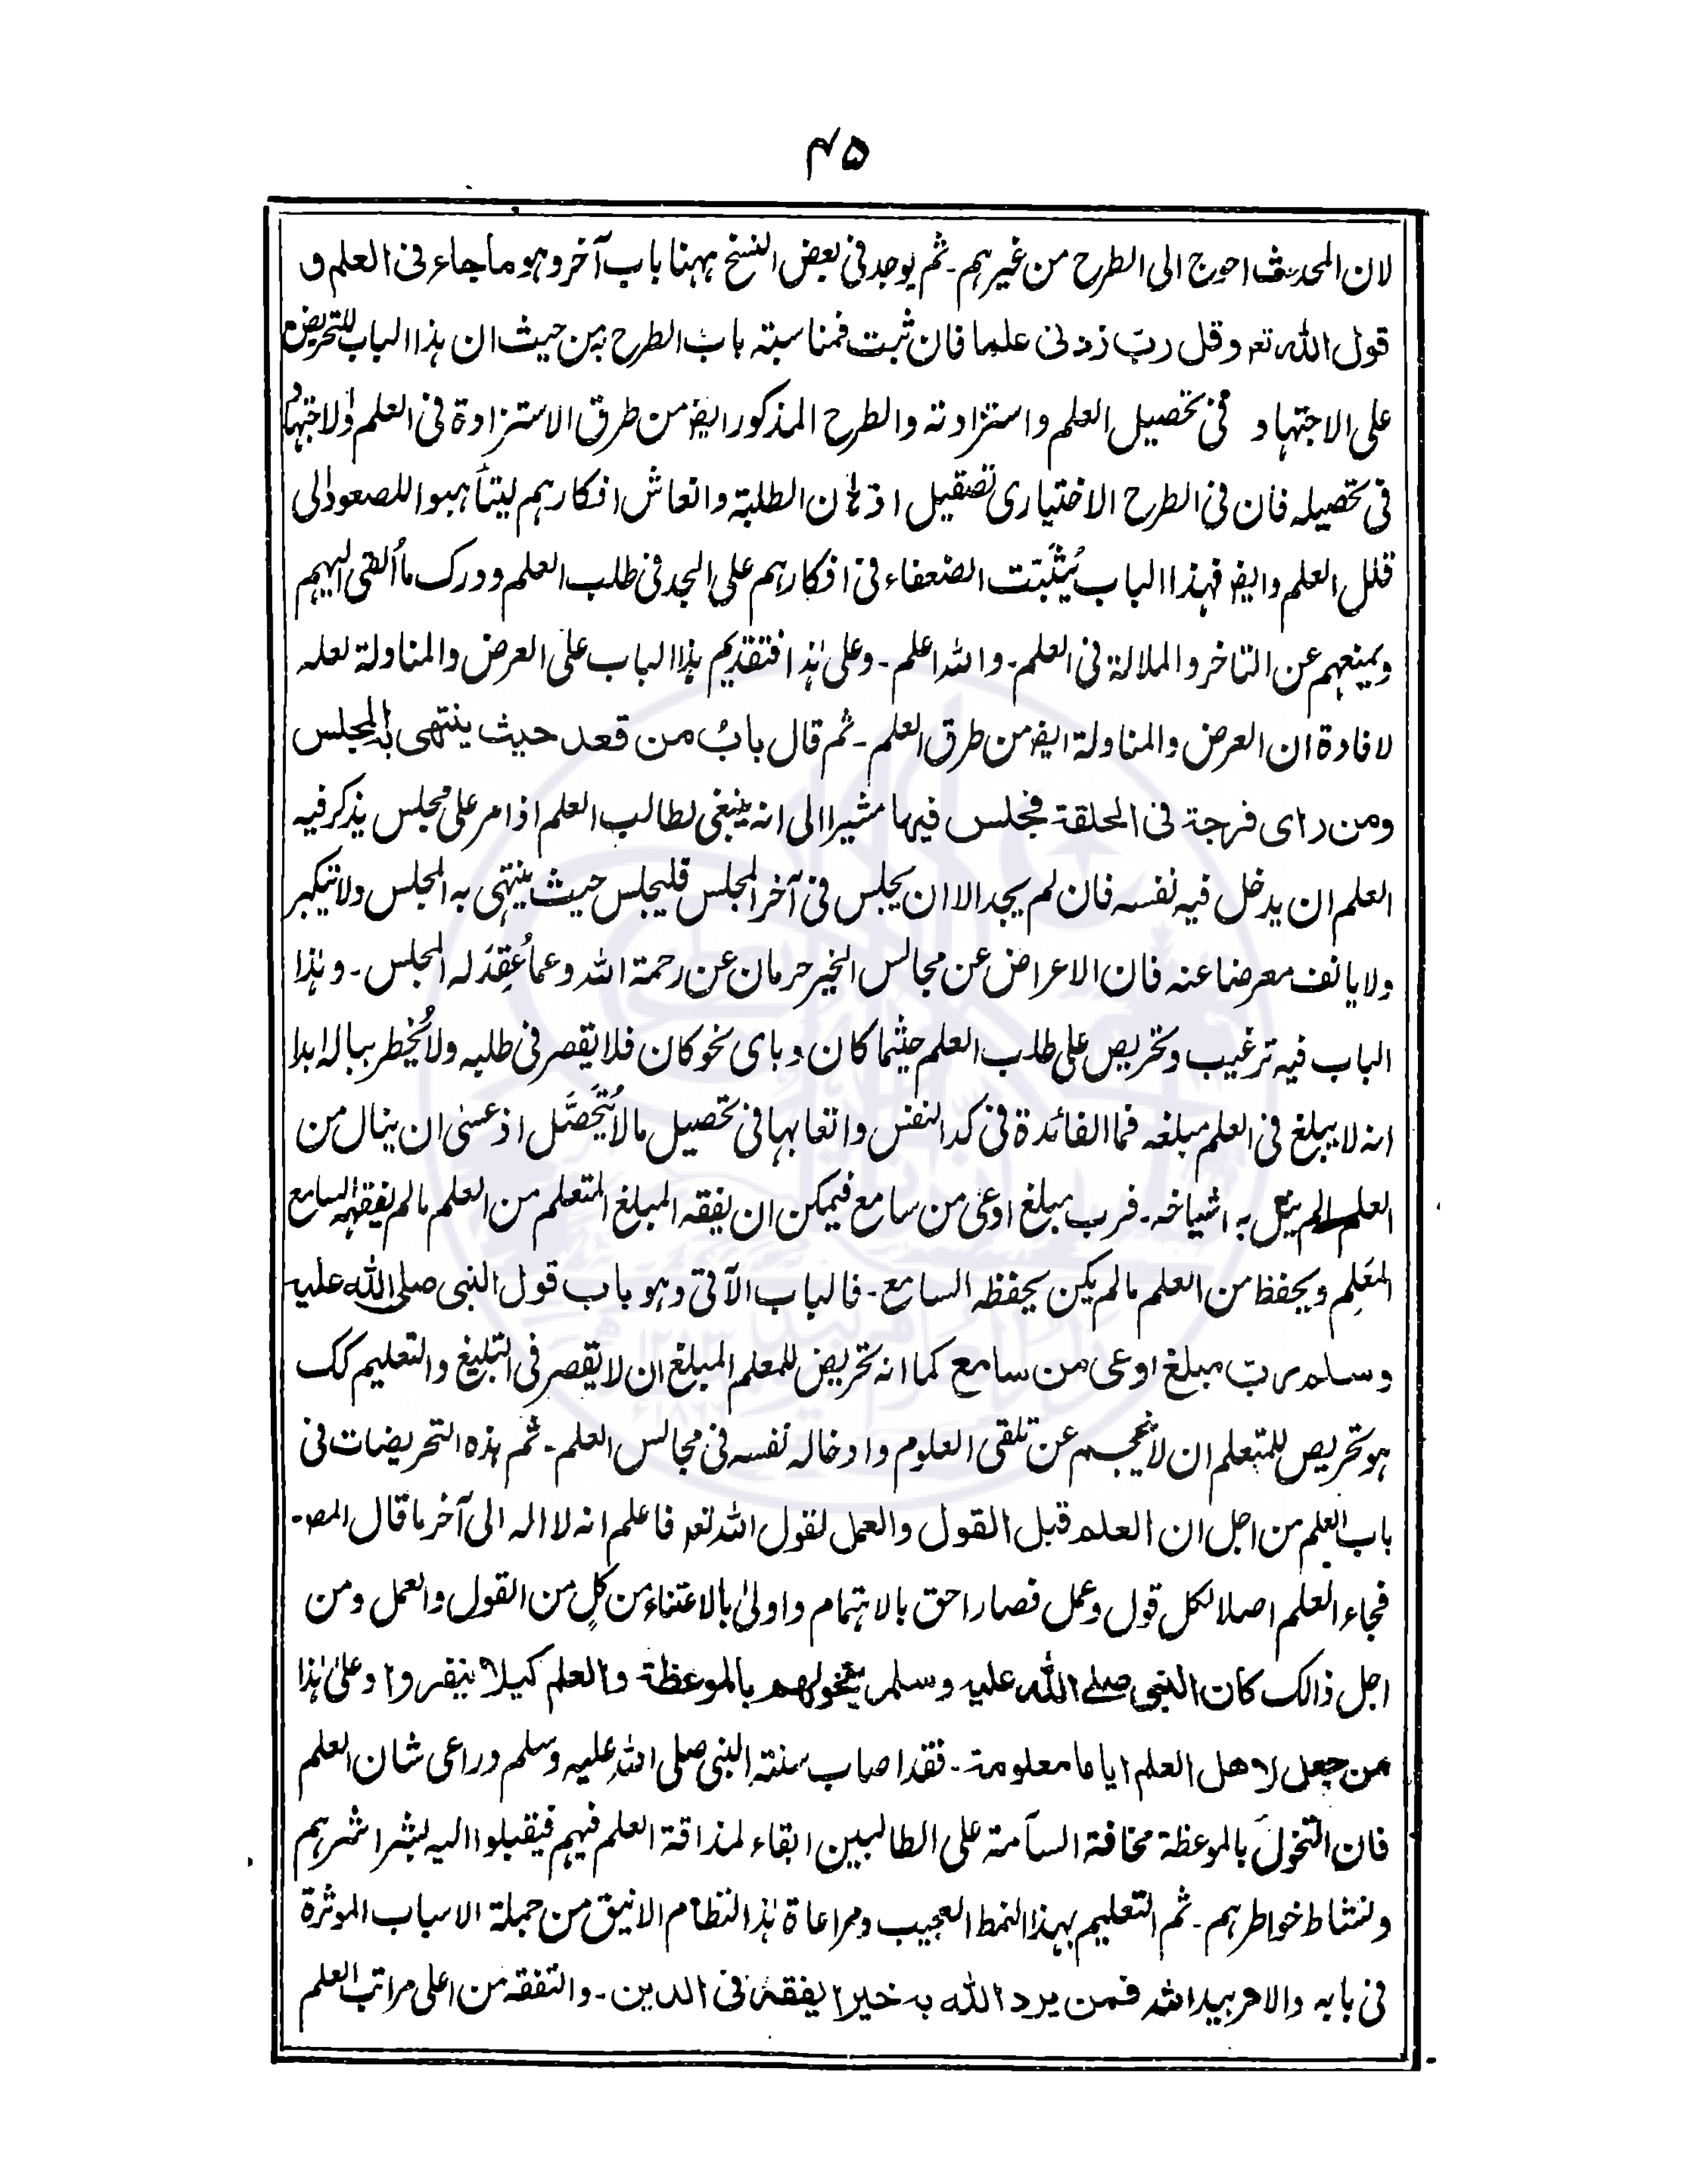 ۴۵
لان المحدث احوج الی الطرح من غیرہم۔ ثم یوجد فی بعض النسخ ہہنا باب آخر وہو ماجاء فی العلم و
قول اللہ تعہ وقل ربّ زدنی علما فان ثبت فمناسبتہ باب الطرح بین حیث ان ہذا الباب للتحریض
علی الاجتہاد فی تحصیل العلم واستزادتہ والطرح المذکور ایضہ من طرق الاستزادۃ فی العلم والاجتہاد
فی تحصیلہ فان فی الطرح الاختیاری تصقیل اذہان الطلبۃ وانعاش افکارہم لیتأہبوا للصعود الی
قلل العلم وایضہ فہذا الباب یُثبِّت الضعفاء فی افکارہم علی الجد فی طلب العلم ودرک ما اُلقی الیہم
ویمنعہم عن التاخر والملالۃ فی العلم۔ واللہ اعلم۔ وعلی ہٰذا فتقدیم ہذا الباب علی العرض والمناولۃ لعلہ
لافادۃ ان العرض والمناولۃ ایضہ من طرق العلم۔ ثم قال بابُ من قعد حیث ینتہی بہ المجلس
ومن رای فرجۃ فی الحلقۃ فجلس فیہا مشیرا الی انہ ینبغی لطالب العلم اذا مر علی مجلس یذکر فیہ
العلم ان یدخل فیہ نفسہ فان لم یجد الا ان یجلس فی آخر المجلس فلیجلس حیث ینتہی بہ المجلس ولا یتکبر
ولا یانف معرضا عنہ فان الاعراض عن مجالس الخیر حرمان عن رحمۃ اللہ وعما عُقِدَ لہ المجلس۔ وہٰذا
الباب فیہ ترغیب وتحریص علی طلب العلم حیثما کان وبای نحو کان فلا یقصر فی طلبہ ولا یُخطر ببالہ ابدا
انہ لا یبلغ فی العلم مبلغہ فما الفائدۃ فی کد النفس واتعابہا فی تحصیل مالا یُتَحصَّل اذ عسٰی ان ینال من
العلم مالم ینل بہ اشیاخہ۔ فرب مبلغ اوعٰی من سامع فیمکن ان یفقہ المبلغ المتعلم من العلم مالم یفقہہ السامع
المعلِم ویحفظ من العلم مالم یکن یحفظہ السامع۔ فالباب الآتی وہو باب قول النبی صلی اللہ علیہ
وسلم ربّ مبلغ اوعی من سامع کما انہ تحریض للمعلم المبلغ ان لا یقصر فی التبلیغ والتعلیم کک
ہو تحریص للمتعلم ان لا یحجم عن تلقی العلوم وادخالہ نفسہ فی مجالس العلم۔ ثم ہذہ التحریضات فی
باب العلم من اجل ان العلم قبل القول والعمل لقول اللہ تعہ فاعلم انہ لا الہ الی آخر ما قال المصـ
فجاء العلم اصلا لکل قول وعمل فصار احق بالاہتمام واولیٰ بالاعتناء من کلٍ من القول والعمل ومن
اجل ذالک کان النبی صلے اللہ علیہ وسلم یتخولہم بالموعظۃ والعلم کیلا ینفروا وعلیٰ ہٰذا
من جعل لاہل العلم ایاما معلومۃ۔ فقد اصاب سنتہ النبی صلی اللہ علیہ وسلم وراعی شان العلم
فان التخولَ بالموعظۃ مخافۃ السآمۃ علی الطالبین ابقاء لمذاقۃ العلم فیہم فیقبلوا الیہ بشراشرہم
ونشاط خواطرہم۔ ثم التعلیم بہذا النمط العجیب ومراعاۃ ہٰذا النظام الانیق من جملۃ الاسباب الموثرۃ
فی بابہ والامر بید اللہ فمن یرد اللہ بہ خیرا یفقہہ فی الدین۔ والتفقہ من اعلی مراتب العلم